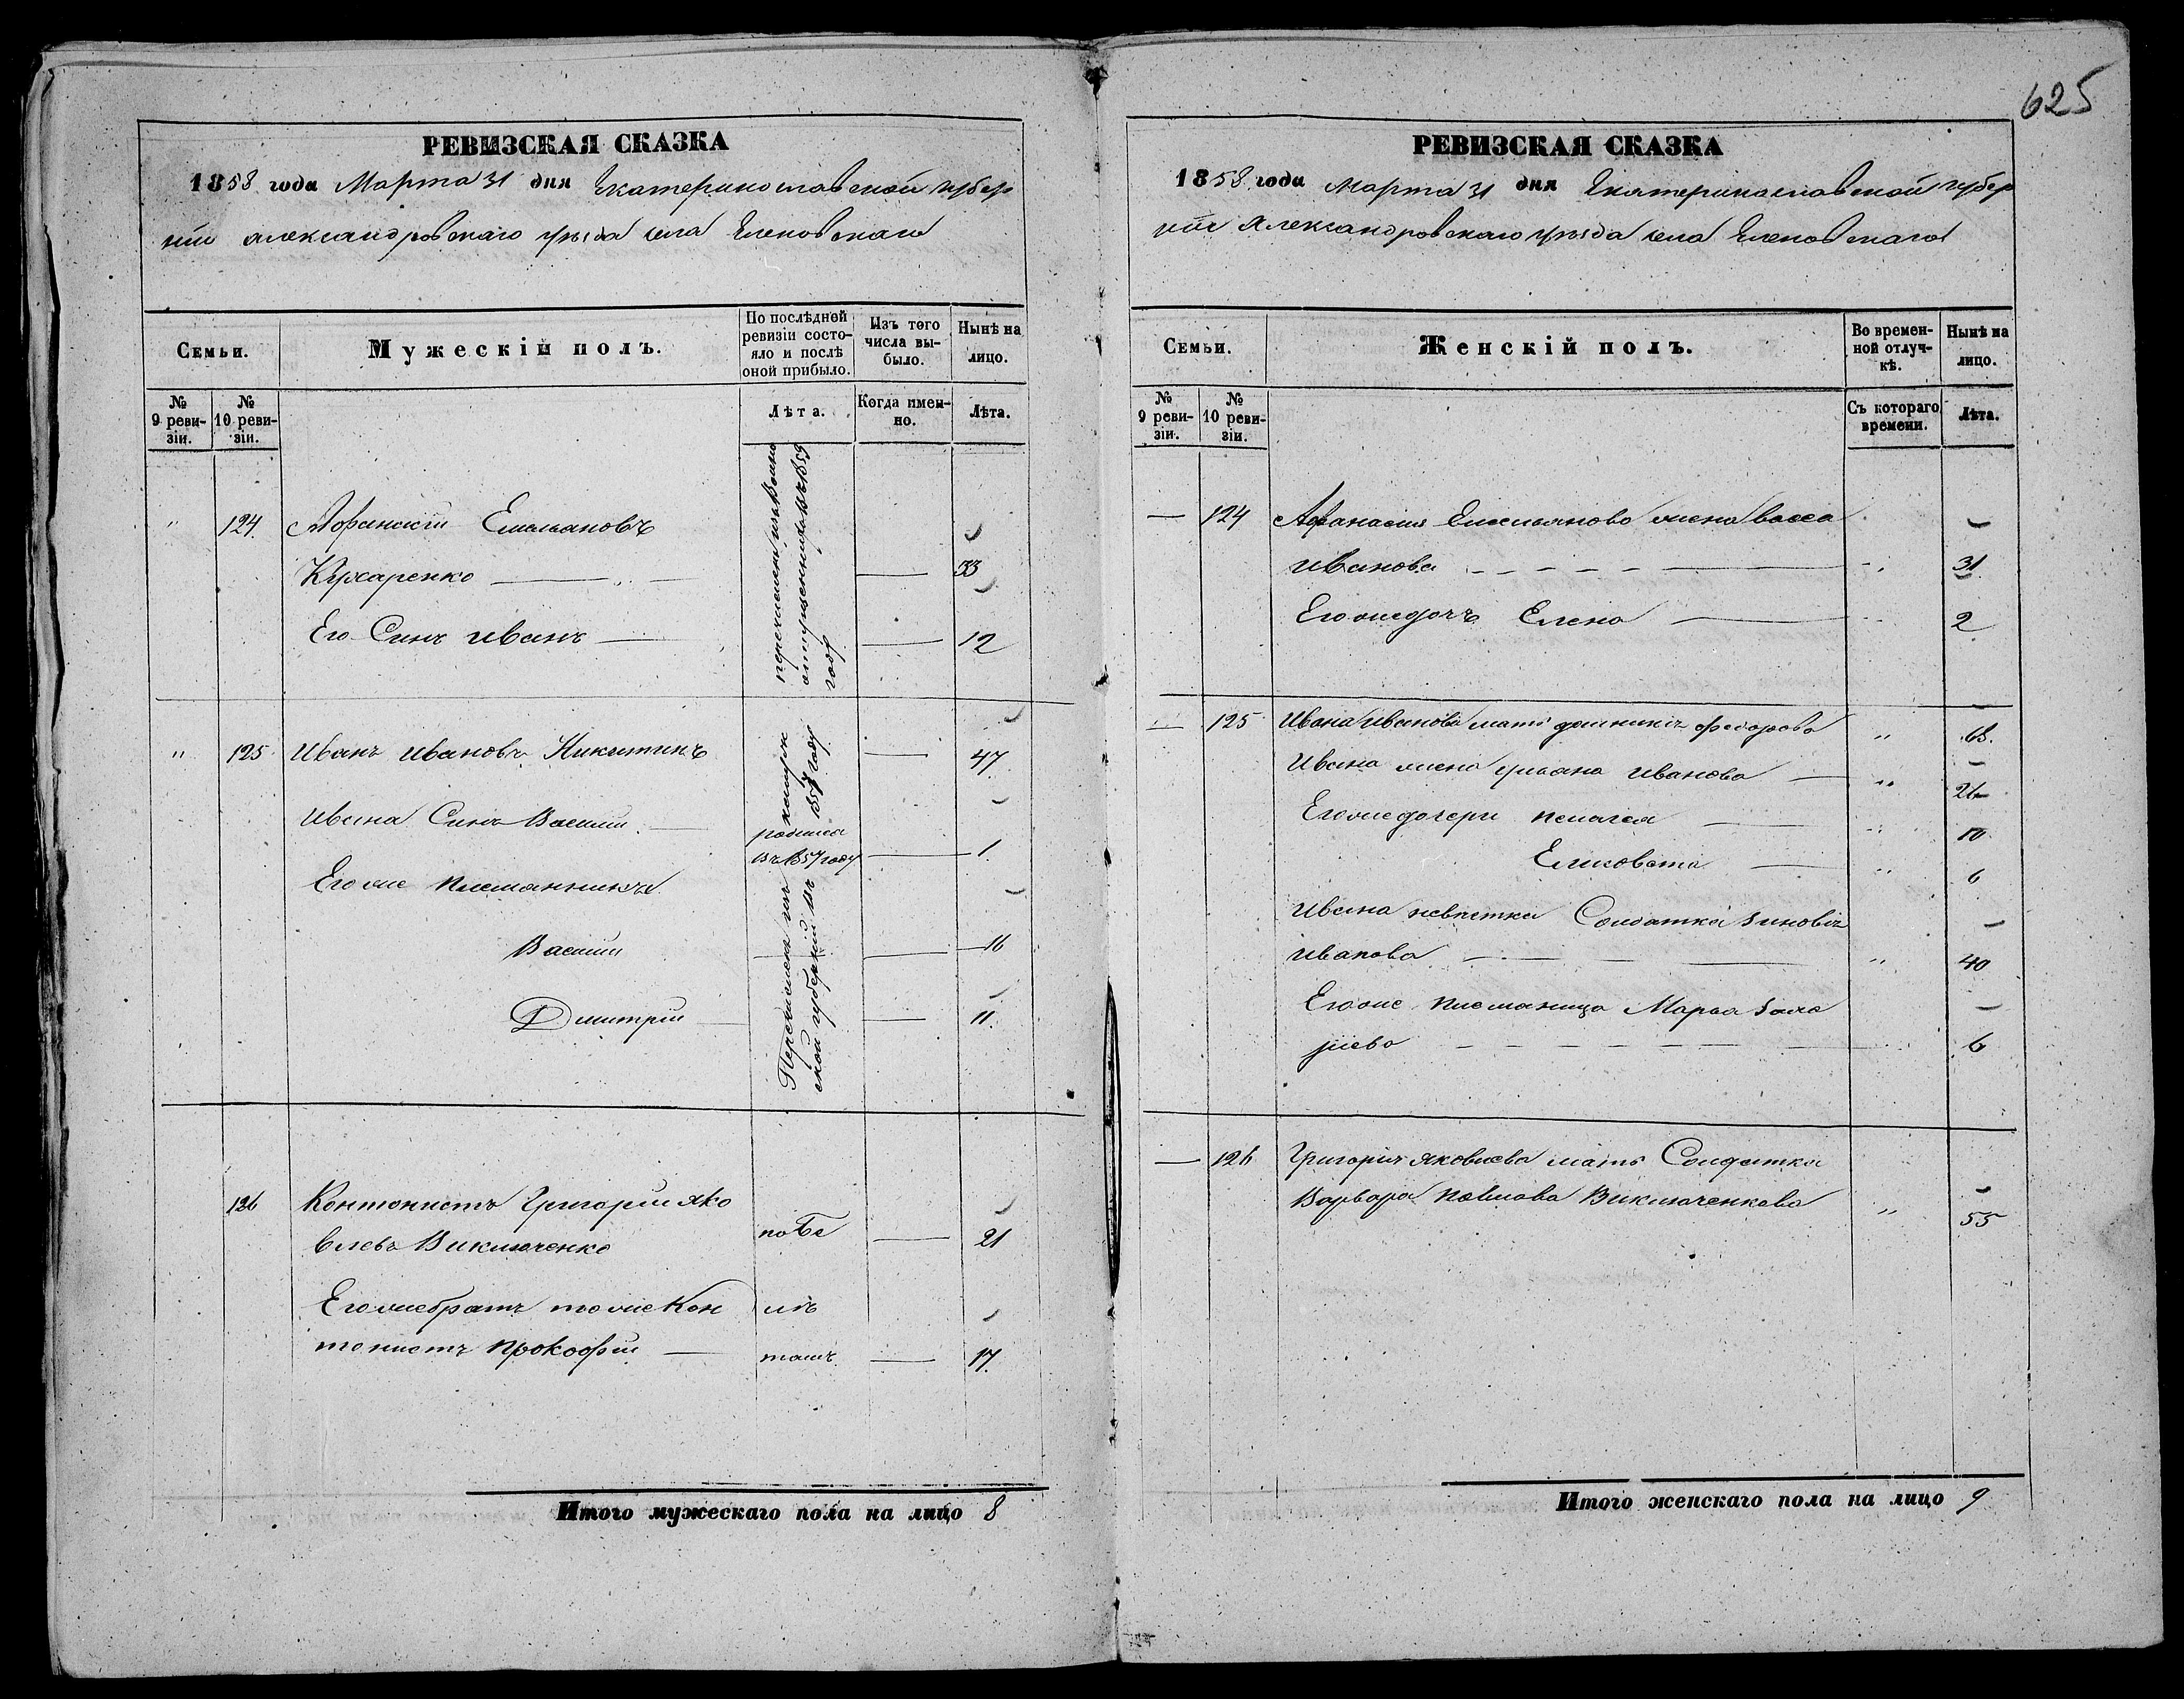 625
РЕВИЗСКАЯ СКАЗКА
1858 года Марта 31 дня Екатеринославской губер
ніи александровскаго уѣзда села Еленовскаго
Семьи.
Мужескій полъ.
По послѣдней ревизіи состояло и послѣ оной прибыло.
Изъ того числа выбыло.
Нынѣ на лицо.
№ 9 ревизіи.
№ 10 ревизіи.
Лѣта.
Когда именно.
Лѣта.
" 124. Афанасій Емельяновъ
Кухаренко — — 33
Его Синъ иванъ — — 12
перечисленъ изъ
въ 1859
году
" 125 Иванъ Ивановъ Никитинъ — 47
Ивана Синъ Василий — родился
въ 1857 году — 1.
Его же племянники
Василий — 16
Дмитрій — 11.
Перечисленъ изъ
ской губерніи въ 1857 году
126 Контонистъ Григорій Яко
влевъ Виключенко — 21
Его же братъ тоже Кон
тонистъ Прокофій — — 17.
Итого мужескаго пола на лицо 8
РЕВИЗСКАЯ СКАЗКА
1858 года Марта 31 дня Екатеринославской губер
ніи Александровскаго уѣзда села Еленовскаго
Семьи.
Женскій полъ.
Во временной отлучкѣ.
Нынѣ на лицо.
№ 9 ревизіи.
№ 10 ревизіи.
Съ котораго времени.
Лѣта.
— 124 Афанасия Емельянова жена Васса
Иванова — 31
Его же дочь Елена — 2
— 125 Ивана Иванова мать Федорова " 68.
Ивана жена ульяна Иванова — "
Его же дочери Пелагея — " 10
Елисовета — " 6
Ивана невѣстка Солдатка Зиновія
Иванова — " 40
Его же племяница Марья Заха
рiева — 6
— 126 Григорія Яковлева мать Солдатка
Варвара Павлова Виключенкова " 55
Итого женскаго пола на лицо 9